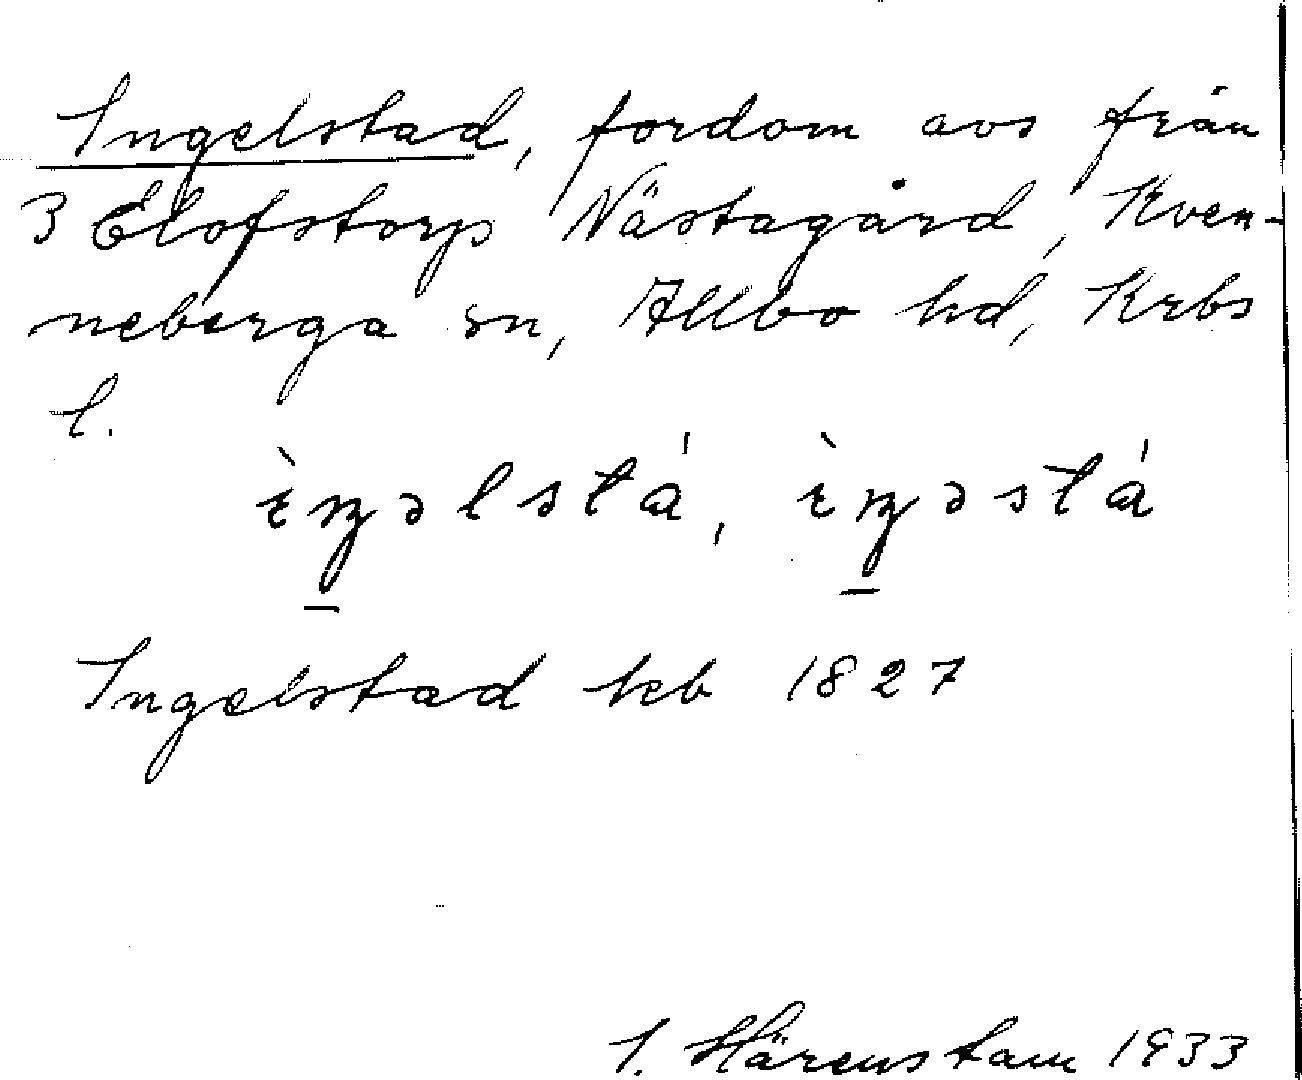 Ingelstad, fordom avs från
3 Elofstorp Nästagård, Kven-
neberga sn, Allbo hd, Krbs
l.
ìŋəlstá, ìŋəstá
Ingelstad kb 1827
I. Härenstam 1933